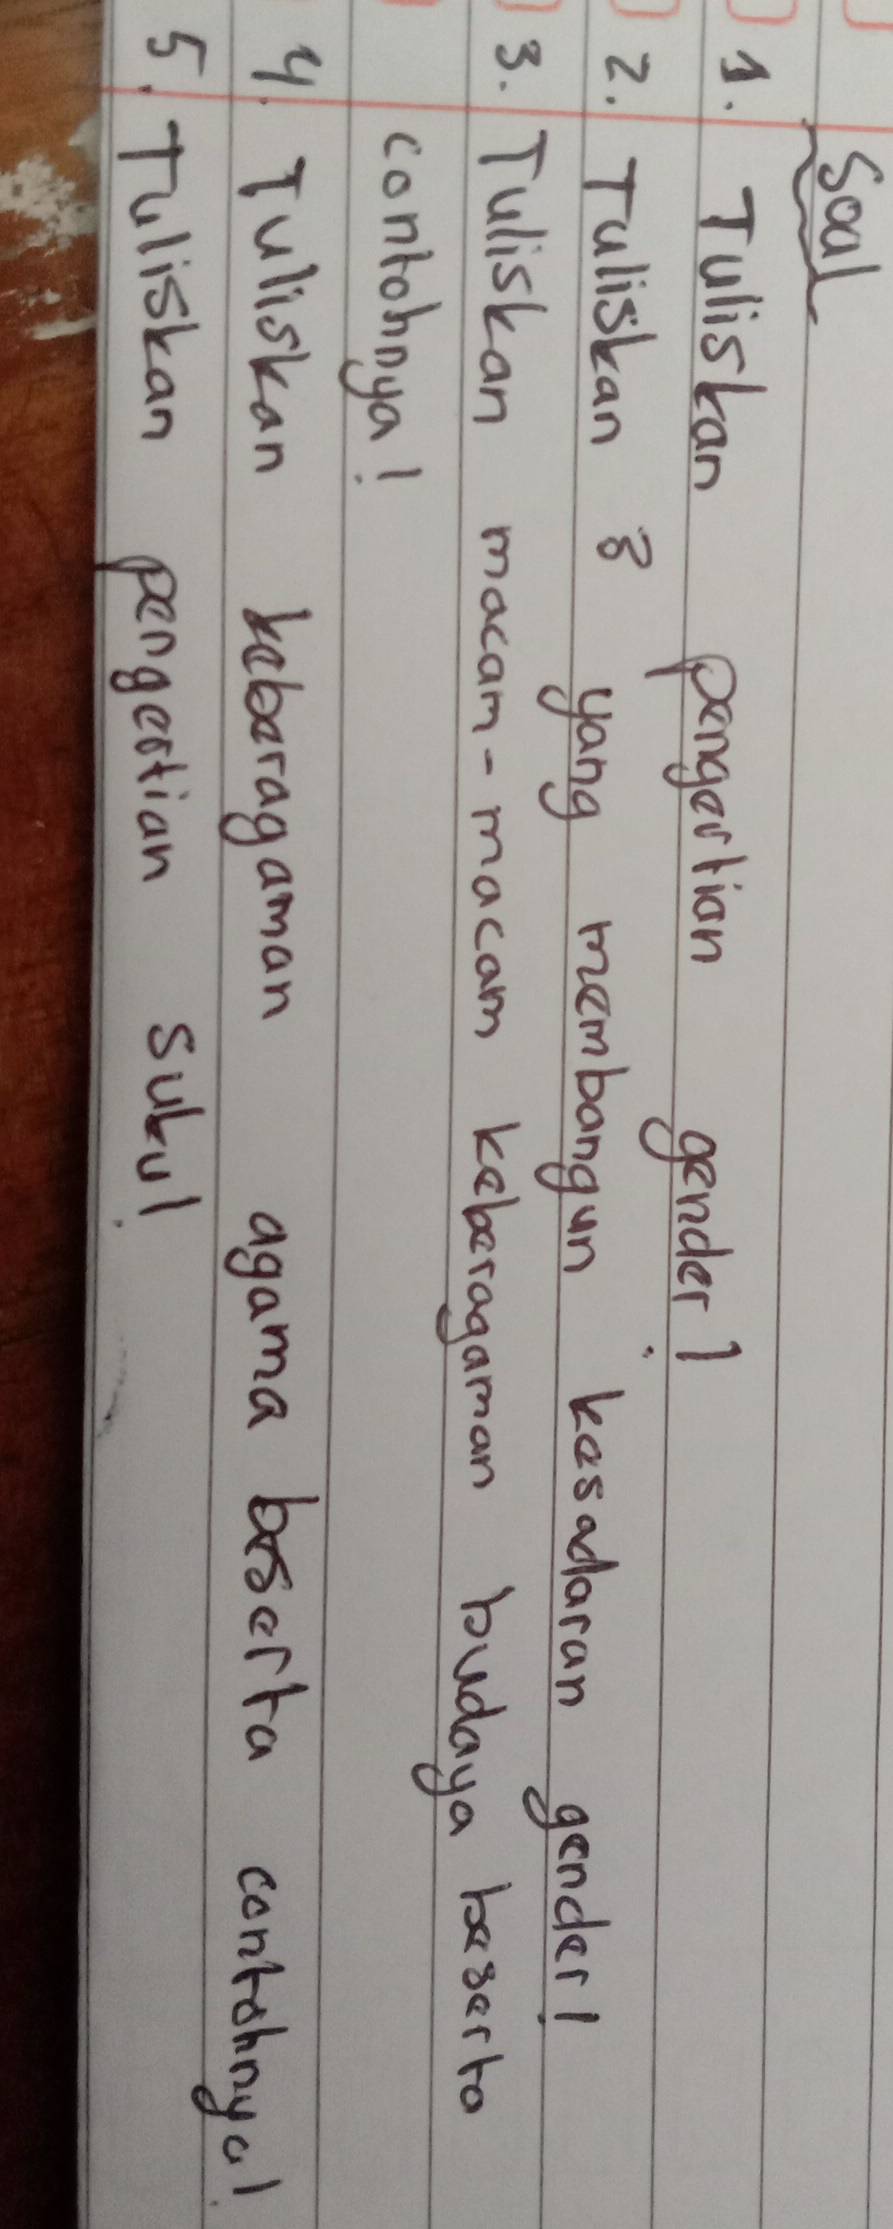 Soal
1. Tuliskan pengertian gender!
2. Tuliskan 8 yang membangun kesadaran gender!
3. Tuliskan macam-macam keberagaman budaya beserta
contohnya!
4. Tuliskan keberagaman agama beserta contohnya!
5. Tuliskan pengertian suku!